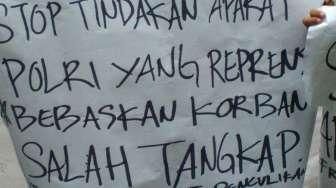 STOP TINDAKAN APARAT
POLRI YANG REPREN
BEBASKAN KORBAN
SALAH TANGKAP.